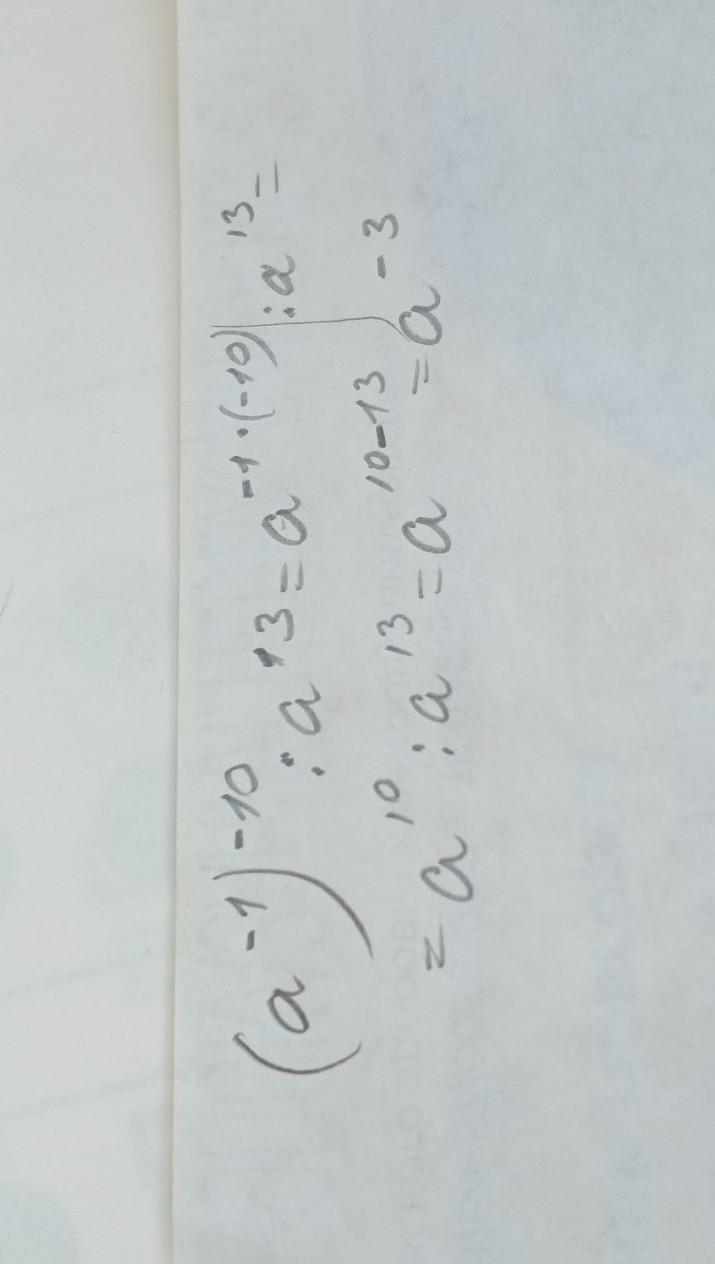 (a⁻¹)⁻¹⁰ : a¹³ = a⁻¹·⁽⁻¹⁰⁾ : a¹³ =
= a¹⁰ : a¹³ = a¹⁰⁻¹³ = a⁻³